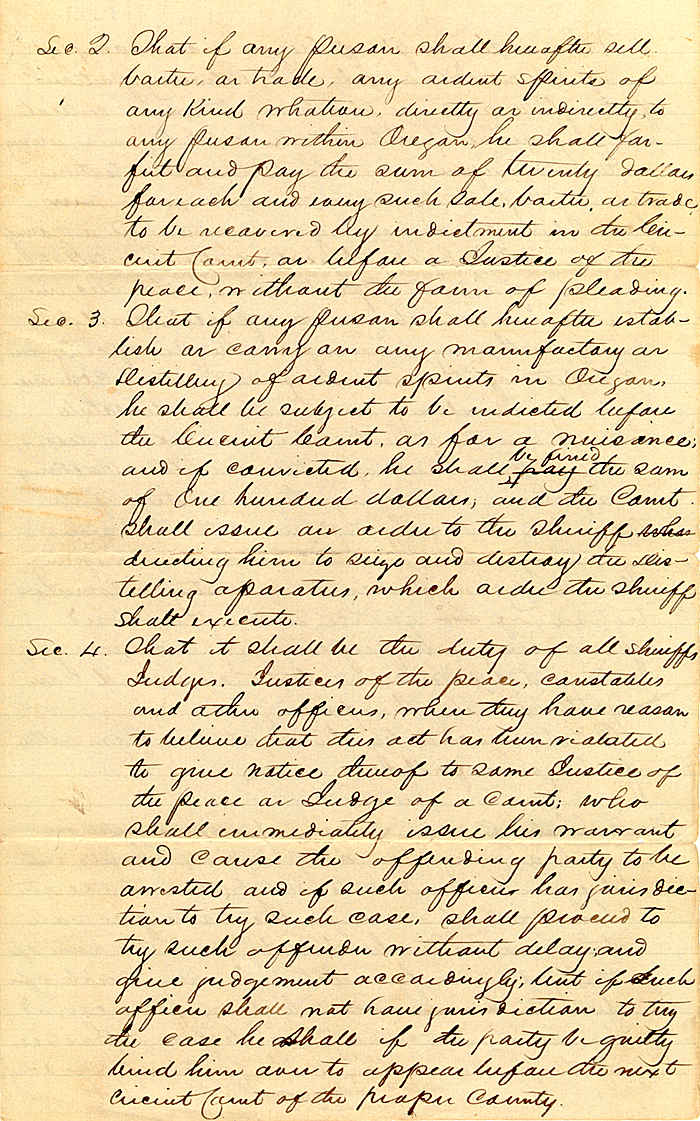 Sec. 2. That if any person shall hereafter sell.
barter, or trade, any ardent spirits of
any Kind whatever, directly or indirectly, to
any person within Oregon, he shall for-
feit and pay the sum of twenty dollars
for each and every such sale, barter, or trade,
to be recovered by indictment in the Cir-
cuit Court, or before a Justice of the
peace, without the form of pleading.
Sec. 3. That if any person shall hereafter estab-
lish or carry on any mannfactory or
Distillery of ardent spirits in Oregon,
he shall be subject to be indicted before
the Circuit Court, as for a nuisance;
be fined
and if convicted, he shall pay the sum
of One hundred dollars; and the Court
shall issue an order to the sheriff
directing him to seize and destroy the dis-
telling apparatus, which order the sheriff
shall execute.
Sec. 4. That it shall be the duty of all sheriffs
Judges, Justices of the peace, constables
and other officers, when they have reason
to believe that this act has been violated
to give notice thereof to some Justice of
the peace or Judge of a Court; who
shall immediately issue his warrant
and cause the offending party to be
arrested and if such officer has jurisdic-
tion to try such case, shall proceed to
try such offender without delay, and
give judgement accordingly; but if such
officer shall not have jurisdiction to try
the case he shall if the party be guilty
bind him over to appear before the next
circuit Court of the proper County.